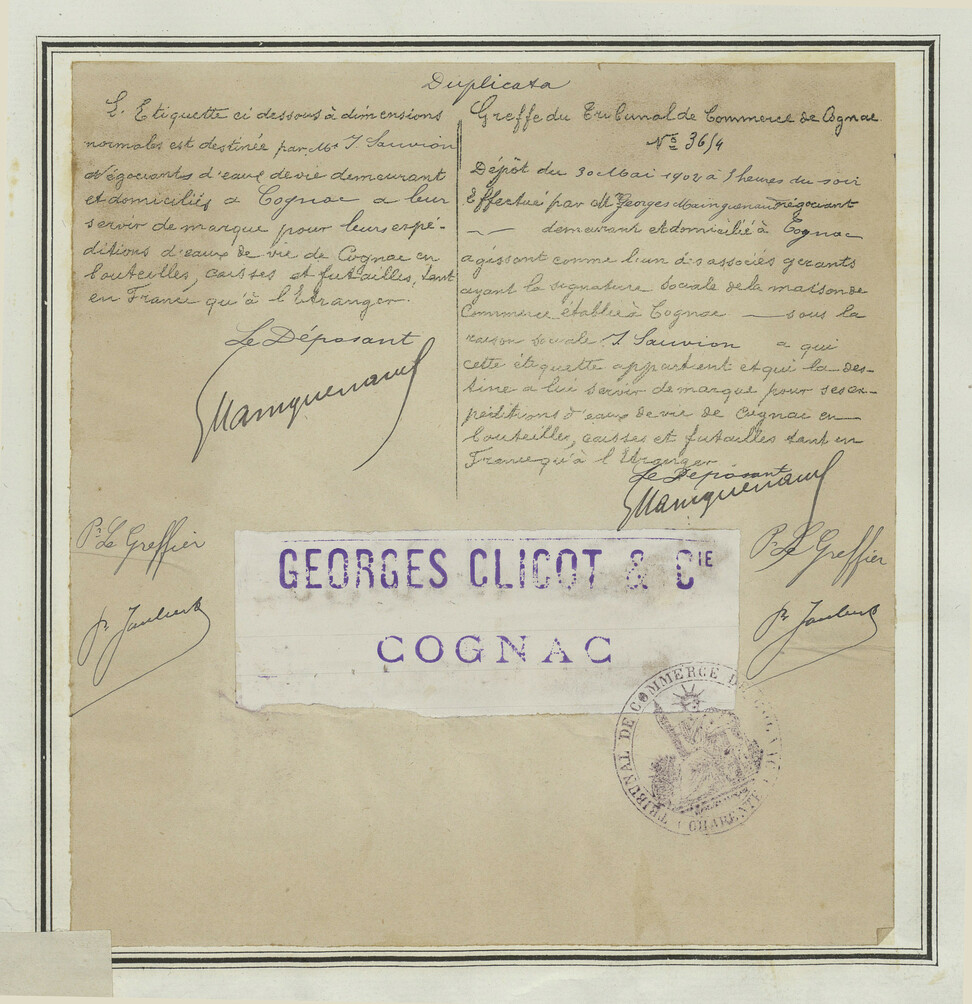 Duplicata
L'Etiquette ci dessous à dimensions
normales est destinée par Mrs J Sauvion
Négociants d'eaux de vie demeurant
et domiciliés a Cognac a leur
servir de marque pour leurs expé-
ditions d'eaux de vie de Cognac en
bouteilles, caisses et futailles, tant
en France qu'à l'Etranger.
Le Déposant
GMainguenaud
Greffe du Tribunal de Commerce de Cognac
No 3614
Dépôt du 30 Mai 1902 à 3 heures du soir
Effectué par M Georges Mainguenaud négociant
— demeurant et domicilié à Cognac
agissant comme l'un des associés gérants
ayant la signature sociale de la maison de
Commerce établie à Cognac — sous la
raison sociale J Sauvion a qui
cette étiquette appartient et qui la des-
tine a lui servir de marque pour ses ex-
péditions d'eaux de vie de Cognac en
bouteilles, caisses et futailles tant en
France qu'à l'Etranger
Le Déposant
GMainguenaud
Pr Le Greffier
Pr Le Greffier
GEORGES CLICOT & CIE
COGNAC
TRIBUNAL DE COMMERCE DE COGNAC
CHARENTE